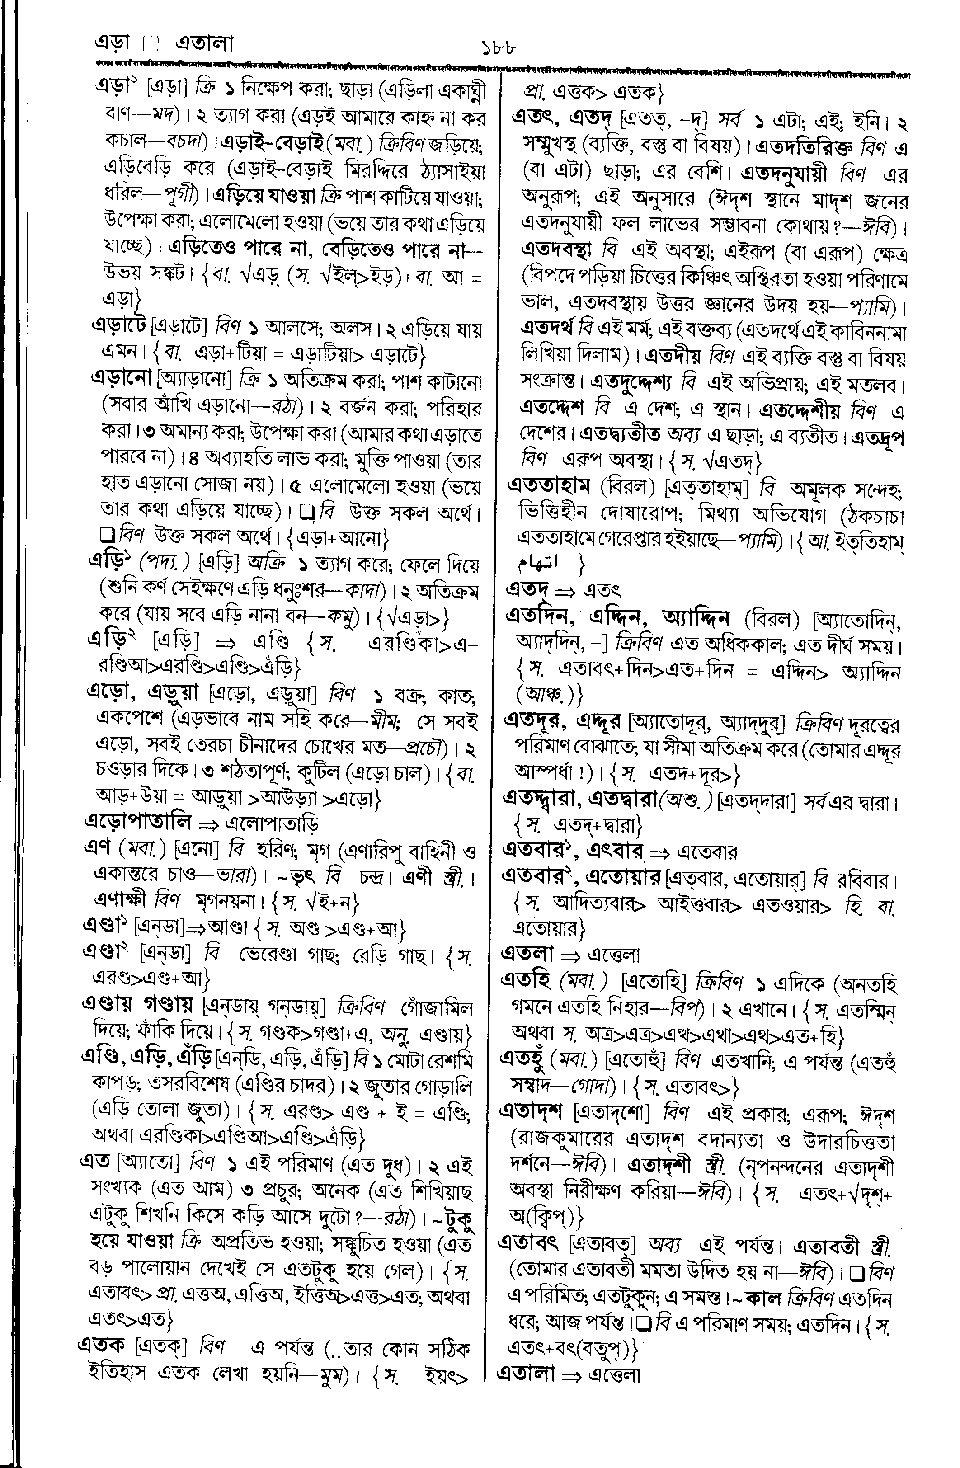 এড়া □ এতালা
১৮৮
এড়া২ [এড়া] ক্রি ১ নিক্ষেপ করা; ছাড়া (এড়িলা একাঘ্নী
বাণ—মদ)। ২ ত্যাগ করা (এড়ই আমারে কাহ্ন না কর
কচাল—বচদা)। এড়াই-বেড়াই (মবা.) ক্রিবিণ জড়িয়ে;
এড়িবেড়ি করে (এড়াই-বেড়াই মিরদ্দিরে ঠ্যাসাইয়া
ধরিল—পূগী)। এড়িয়ে যাওয়া ক্রি পাশ কাটিয়ে যাওয়া;
উপেক্ষা করা; এলোমেলো হওয়া (ভয়ে তার কথা এড়িয়ে
যাচ্ছে)। এড়িতেও পারে না, বেড়িতেও পারে না—
উভয় সঙ্কট। {বা. √এড় (স. √ইল্>ইড়)। বা. আ =
এড়া}
এড়াটে [এড়াটে] বিণ ১ আলসে; অলস। ২ এড়িয়ে যায়
এমন। {বা. এড়া+টিয়া = এড়াটিয়া> এড়াটে}
এড়ানো [অ্যাড়ানো] ক্রি ১ অতিক্রম করা; পাশ কাটানো
(সবার আঁখি এড়ানো—রঠা)। ২ বর্জন করা; পরিহার
করা। ৩ অমান্য করা; উপেক্ষা করা (আমার কথা এড়াতে
পারবে না)। ৪ অব্যাহতি লাভ করা; মুক্তি পাওয়া (তার
হাত এড়ানো সোজা নয়)। ৫ এলোমেলো হওয়া (ভয়ে
তার কথা এড়িয়ে যাচ্ছে)। ❑ বি উক্ত সকল অর্থে।
❑ বিণ উক্ত সকল অর্থে। {এড়া+আনো}
এড়ি১ (পদ্য.) [এড়ি] অক্রি ১ ত্যাগ করে; ফেলে দিয়ে
(শুনি কর্ণ সেইক্ষণে এড়ি ধনুঃশর—কাদা)। ২ অতিক্রম
করে (যায় সবে এড়ি নানা বন—কমু)। {√এড়া>}
এড়ি২ [এড়ি] ⇒ এণ্ডি {স. এরণ্ডিকা>এ-
রণ্ডিআ>এরণ্ডি>এণ্ডি>এঁড়ি}
এড়ো, এড়ুয়া [এড়ো, এড়ুয়া] বিণ ১ বক্র, কাত;
একপেশে (এড়ভাবে নাম সহি করে—মীম; সে সবই
এড়ো, সবই তেরচা চীনাদের চোখের মত—প্রচৌ)। ২
চওড়ার দিকে। ৩ শঠতাপূর্ণ; কুটিল (এড়ো চাল)। {বা.
আড়+উয়া = আড়ুয়া >আউড়্যা >এড়ো}
এড়োপাতালি ⇒ এলোপাতাড়ি
এণ (মবা.) [এনো] বি হরিণ; মৃগ (এণারিপু বাহিনী ও
একান্তরে চাও—ভারা)। ~ভৃৎ বি চন্দ্র। এণী স্ত্রী.।
এণাক্ষী বিণ মৃগনয়না। {স. √ই+ন}
এণ্ডা১ [এন্ডা]⇒আণ্ডা {স. অণ্ড >এণ্ড+আ}
এণ্ডা২ [এন্ডা] বি ভেরেণ্ডা গাছ; রেড়ি গাছ। {স.
এরণ্ড>এণ্ড+আ}
এণ্ডায় গণ্ডায় [এন্ডায়্ গন্ডায়্] ক্রিবিণ গোঁজামিল
দিয়ে; ফাঁকি দিয়ে। {স. গণ্ডক>গণ্ডা+এ, অনু. এণ্ডায়}
এণ্ডি, এড়ি, এঁড়ি [এন্ডি, এড়ি, এঁড়ি] বি ১ মোটা রেশমি
কাপড়; তসরবিশেষ (এণ্ডির চাদর)। ২ জুতার গোড়ালি
(এড়ি তোলা জুতা)। {স. এরণ্ড> এণ্ড + ই = এণ্ডি;
অথবা এরণ্ডিকা>এণ্ডিআ>এণ্ডি>এঁড়ি}
এত [অ্যাতো] বিণ ১ এই পরিমাণ (এত দুধ)। ২ এই
সংখ্যক (এত আম) ৩ প্রচুর; অনেক (এত শিখিয়াছ
এটুকু শিখনি কিসে কড়ি আসে দুটো?—রঠা)। ~টুকু
হয়ে যাওয়া ক্রি অপ্রতিভ হওয়া; সঙ্কুচিত হওয়া (এত
বড় পালোয়ান দেখেই সে এতটুকু হয়ে গেল)। {স.
এতাবৎ> প্রা. এত্তঅ, এত্তিঅ, ইত্তিঅ>এত্ত>এত; অথবা
এতৎ>এত}
এতক [এতক্] বিণ এ পর্যন্ত (..তার কোন সঠিক
ইতিহাস এতক লেখা হয়নি—মুম)। {স. ইয়ৎ>
প্রা. এত্তক> এতক}
এতৎ, এতদ্ [এতত্, -দ্] সর্ব ১ এটা; এই; ইনি। ২
সম্মুখস্থ (ব্যক্তি, বস্তু বা বিষয়)। এতদতিরিক্ত বিণ এ
(বা এটা) ছাড়া; এর বেশি। এতদনুযায়ী বিণ এর
অনুরূপ; এই অনুসারে (ঈদৃশ স্থানে মাদৃশ জনের
এতদনুযায়ী ফল লাভের সম্ভাবনা কোথায়?—ঈবি)।
এতদবস্থা বি এই অবস্থা; এইরূপ (বা এরূপ) ক্ষেত্র
(বিপদে পড়িয়া চিত্তের কিঞ্চিৎ অস্থিরতা হওয়া পরিণামে
ভাল, এতদবস্থায় উত্তর জ্ঞানের উদয় হয়—প্যামি)।
এতদর্থ বি এই মর্ম; এই বক্তব্য (এতদর্থে এই কাবিননামা
লিখিয়া দিলাম)। এতদীয় বিণ এই ব্যক্তি বস্তু বা বিষয়
সংক্রান্ত। এতদুদ্দেশ্য বি এই অভিপ্রায়; এই মতলব।
এতদ্দেশ বি এ দেশ; এ স্থান। এতদ্দেশীয় বিণ এ
দেশের। এতদ্ব্যতীত অব্য এ ছাড়া; এ ব্যতীত। এতদ্রূপ
বিণ এরূপ অবস্থা। {স. √এতদ্}
এততাহাম (বিরল) [এত্তাহাম্] বি অমূলক সন্দেহ;
ভিত্তিহীন দোষারোপ; মিথ্যা অভিযোগ (ঠকচাচা
এততাহামে গেরেপ্তার হইয়াছে—প্যামি)। {আ. ইত্তিহাম
اتهام }
এতদ্ ⇒ এতৎ
এতদিন, এদ্দিন, অ্যাদ্দিন (বিরল) [অ্যাতোদিন্,
অ্যাদ্দিন্, -] ক্রিবিণ এত অধিককাল; এত দীর্ঘ সময়।
{স. এতাবৎ+দিন>এত+দিন = এদ্দিন> অ্যাদ্দিন
(আঞ্চ.)}
এতদূর, এদ্দূর [অ্যাতোদূর্, অ্যাদ্দুর্] ক্রিবিণ দূরত্বের
পরিমাণ বোঝাতে; যা সীমা অতিক্রম করে (তোমার এদ্দূর
আস্পর্ধা!)। {স. এতদ+দূর>}
এতদ্দ্বারা, এতদ্বারা (অশু.) [এতদ্দারা] সর্ব এর দ্বারা।
{স. এতদ্+দ্বারা}
এতবার১, এৎবার ⇒ এতেবার
এতবার২, এতোয়ার [এত্বার, এতোয়ার] বি রবিবার।
{স. আদিত্যবার> আইওবার> এতওয়ার> হি. বা.
এতোয়ার}
এতলা ⇒ এত্তেলা
এতহি (মবা.) [এতোহি] ক্রিবিণ ১ এদিকে (অনতহি
গমনে এতহি নিহার—বিপ)। ২ এখানে। {স. এতস্মিন্
অথবা স. অত্র>এত্র>এত্থ>এথা>এথ>এত+হি}
এতহুঁ (মবা.) [এতোহুঁ] বিণ এতখানি; এ পর্যন্ত (এতহুঁ
সম্বাদ—গোদা)। {স. এতাবৎ>}
এতাদৃশ [এতাদৃশো] বিণ এই প্রকার; এরূপ; ঈদৃশ
(রাজকুমারের এতাদৃশ বদান্যতা ও উদারচিত্ততা
দর্শনে—ঈবি)। এতাদৃশী স্ত্রী. (নৃপনন্দনের এতাদৃশী
অবস্থা নিরীক্ষণ করিয়া—ঈবি)। {স. এতৎ+√দৃশ্+
অ(ক্বিপ্)}
এতাবৎ [এতাবত্] অব্য এই পর্যন্ত। এতাবতী স্ত্রী.
(তোমার এতাবতী মমতা উদিত হয় না—ঈবি)। ❑ বিণ
এ পরিমিত; এতটুকুন; এ সমস্ত। ~কাল ক্রিবিণ এতদিন
ধরে; আজ পর্যন্ত। ❑ বি এ পরিমাণ সময়; এতদিন। {স.
এতৎ+বৎ(বতুপ্)}
এতালা ⇒ এত্তেলা